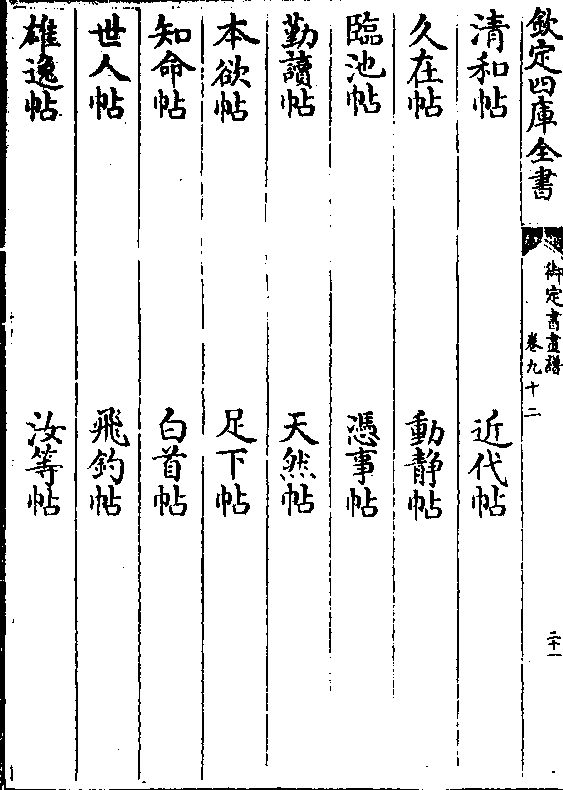 欽定四庫全書
御定書畫譜
卷九十二
二十一
清和帖 近代帖
久在帖 動静帖
臨池帖 憑事帖
勤讀帖 天然帖
本欲帖 足下帖
知命帖 白首帖
世人帖 飛鈞帖
雄逸帖 汝等帖